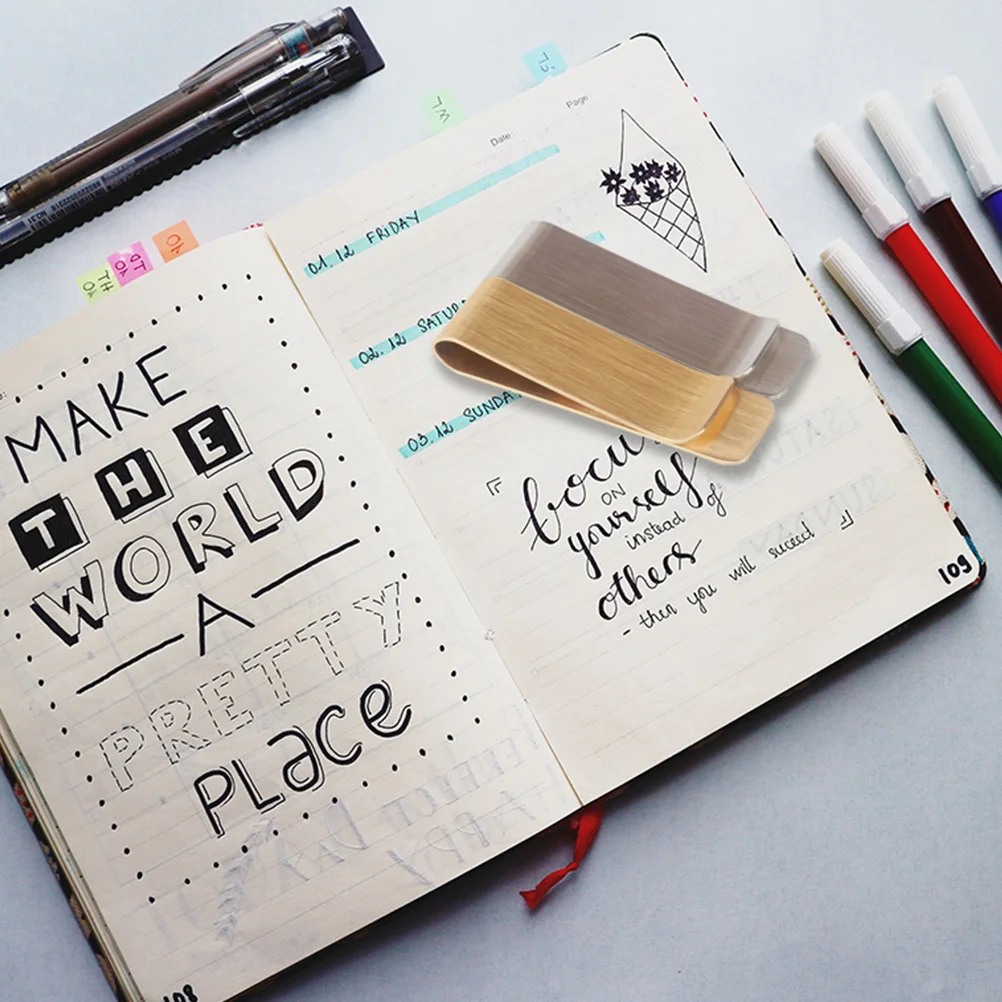 MAKE
THE
WORLD
A
PRETTY
PLace
108
Date:
Page
01.12 FRIDAY
02.12
03.12 SUNDA
focu
ON
yourself
instead of
others
- then you will succeed
109